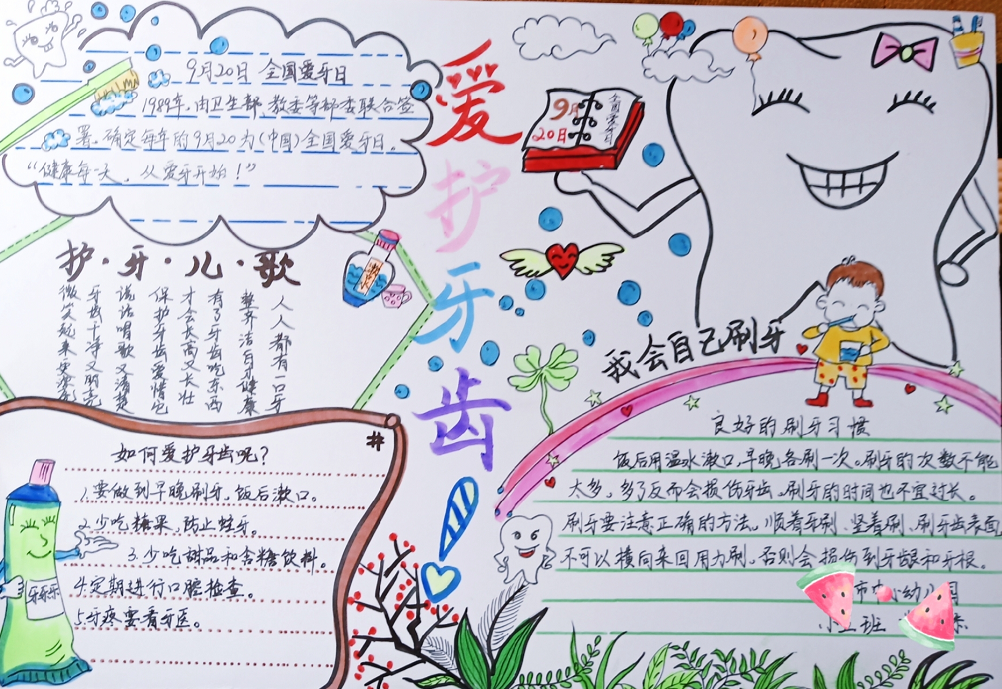 9月20日 全国爱牙日
1989年，由卫生部、教委等部委联合签
署，确定每年的9月20为(中国)全国爱牙日。
“健康每一天，从爱牙开始！”
爱护牙齿！
9月
20日
全国爱牙日
护·牙·儿·歌
人人都有一口牙
整齐洁白才健康
有了牙齿吃东西
才会长高又长壮
保护牙齿爱惜它
说话唱歌又清楚
牙齿干净又明亮
微笑起来更漂亮
漱口水
我会自己刷牙
如何爱护牙齿呢？
1.要做到早晚刷牙，饭后漱口。
2.少吃糖果，防止蛀牙。
3.少吃甜品和含糖饮料。
4.定期进行口腔检查。
5.牙疼要看牙医。
牙牙乐
良好的刷牙习惯
饭后用温水漱口，早晚各刷一次。刷牙的次数不能
太多，多了反而会损伤牙齿。刷牙的时间也不宜过长。
刷牙要注意正确的方法。顺着牙刷、竖着刷、刷牙齿表面
不可以横向来回用力刷，否则会损伤到牙龈和牙根。
市中心幼儿园
小 班